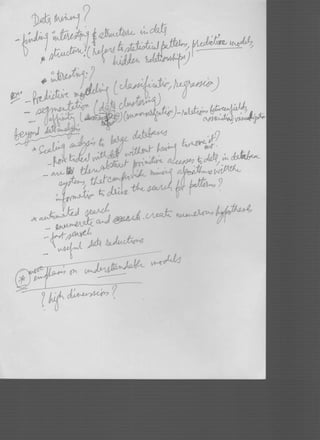 Data mining?
- finding interesting structure in data
* structure: (refers to statistical patterns, predictive models, hidden relationships)
* interesting?
- Predictive modeling (classification, regression)
- segmentation (data clustering)
- (summarization) - relations between fields, associations, visualization
beyond
* Scaling analysis to large databases
- how to deal with data without having to move it?
- are there abstract primitive accesses to data, in database
systems, that can provide mining algorithms with the
information to drive the search for patterns?
* automated search
- enumerate and create numerous hypotheses
- fast search
- useful data reductions
* more emphasis on understandable models
? high dimensions?